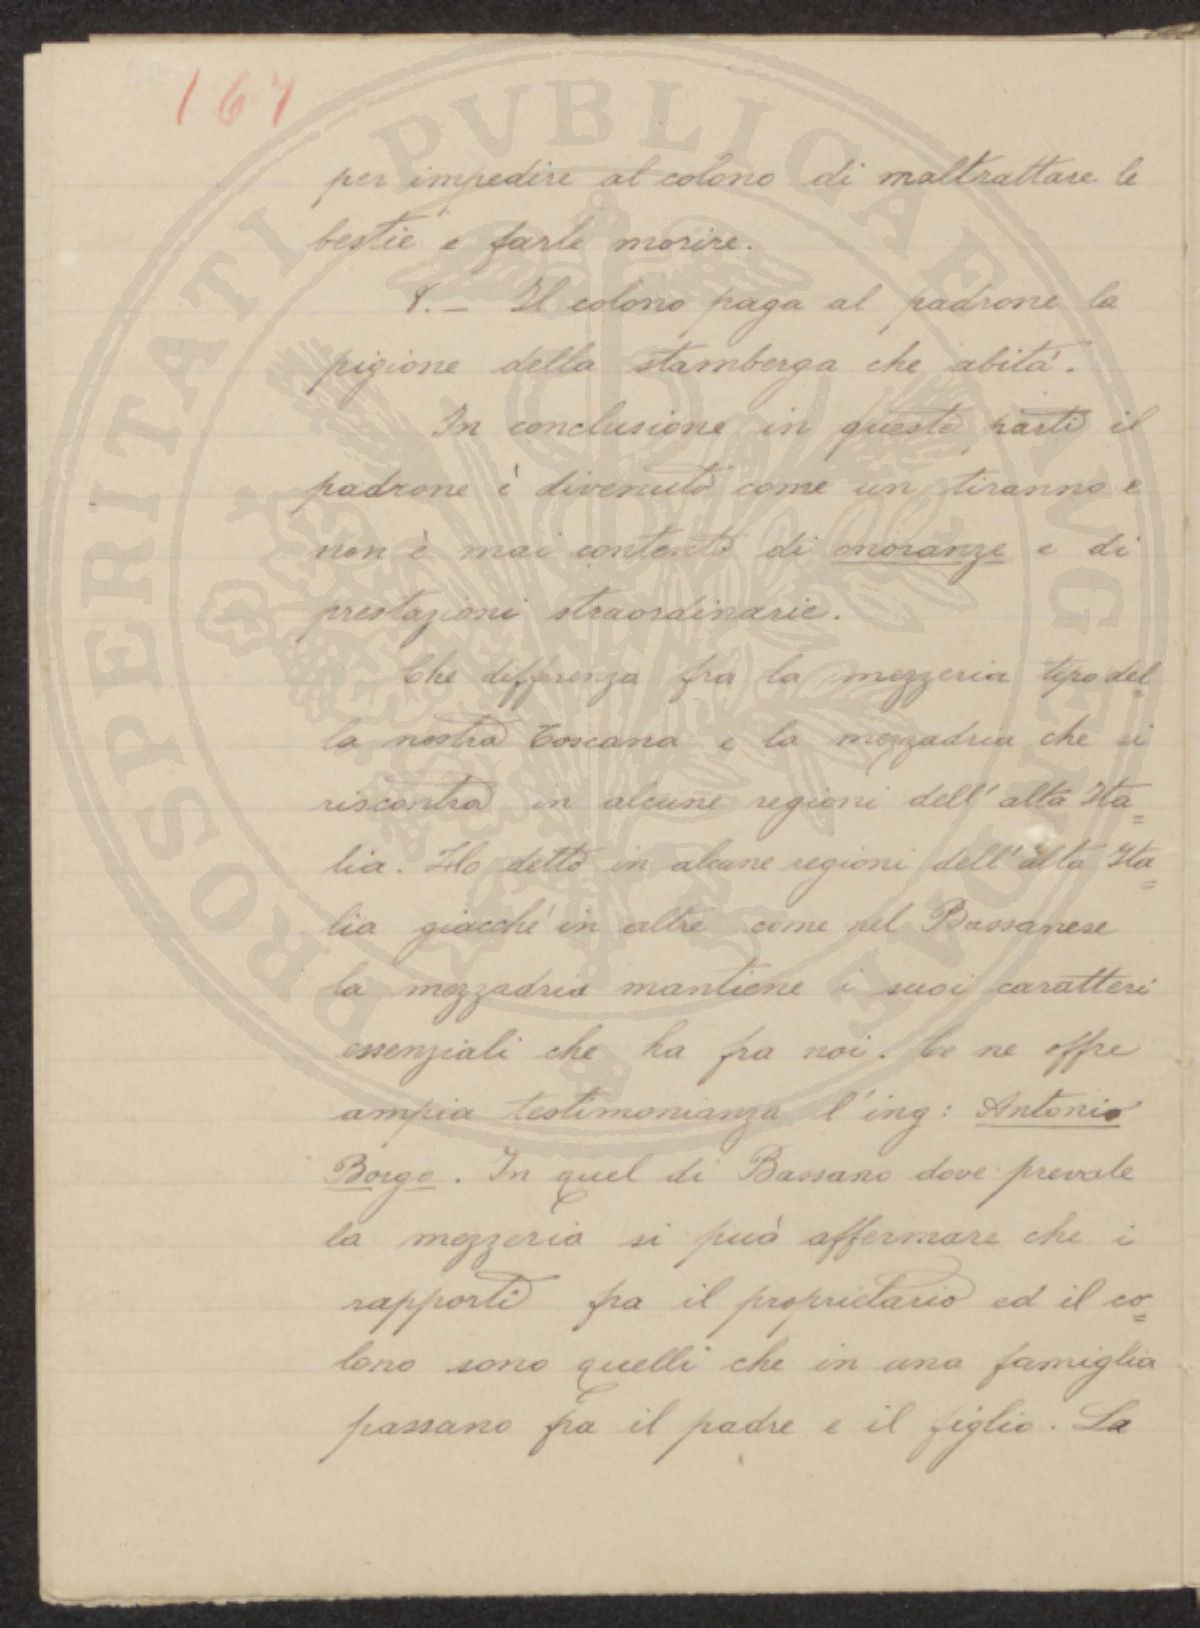 167
per impedire al colono di maltrattare le
bestie e farle morire.
8. — Il colono paga al padrone la
pigione della stamberga che abita.
In conclusione in queste parti il
padrone è divenuto come un tiranno e
non è mai contento di onoranze e di
prestazioni straordinarie.
Che differenza fra la mezzeria tipo del=
la nostra Toscana e la mezzadria che si
riscontra in alcune regioni dell'alta Ita=
lia. Ho detto in alcune regioni dell'alta Ita=
lia giacché in altre come nel Bassanese
la mezzadria mantiene i suoi caratteri
essenziali che ha fra noi. Ce ne offre
ampia testimonianza l'ing: Antonio
Borgo. In quel di Bassano dove prevale
la mezzeria si può affermare che i
rapporti fra il proprietario ed il co=
lono sono quelli che in una famiglia
passano fra il padre e il figlio. La
PROSPERITATI PVBLICAE AVGENDAE